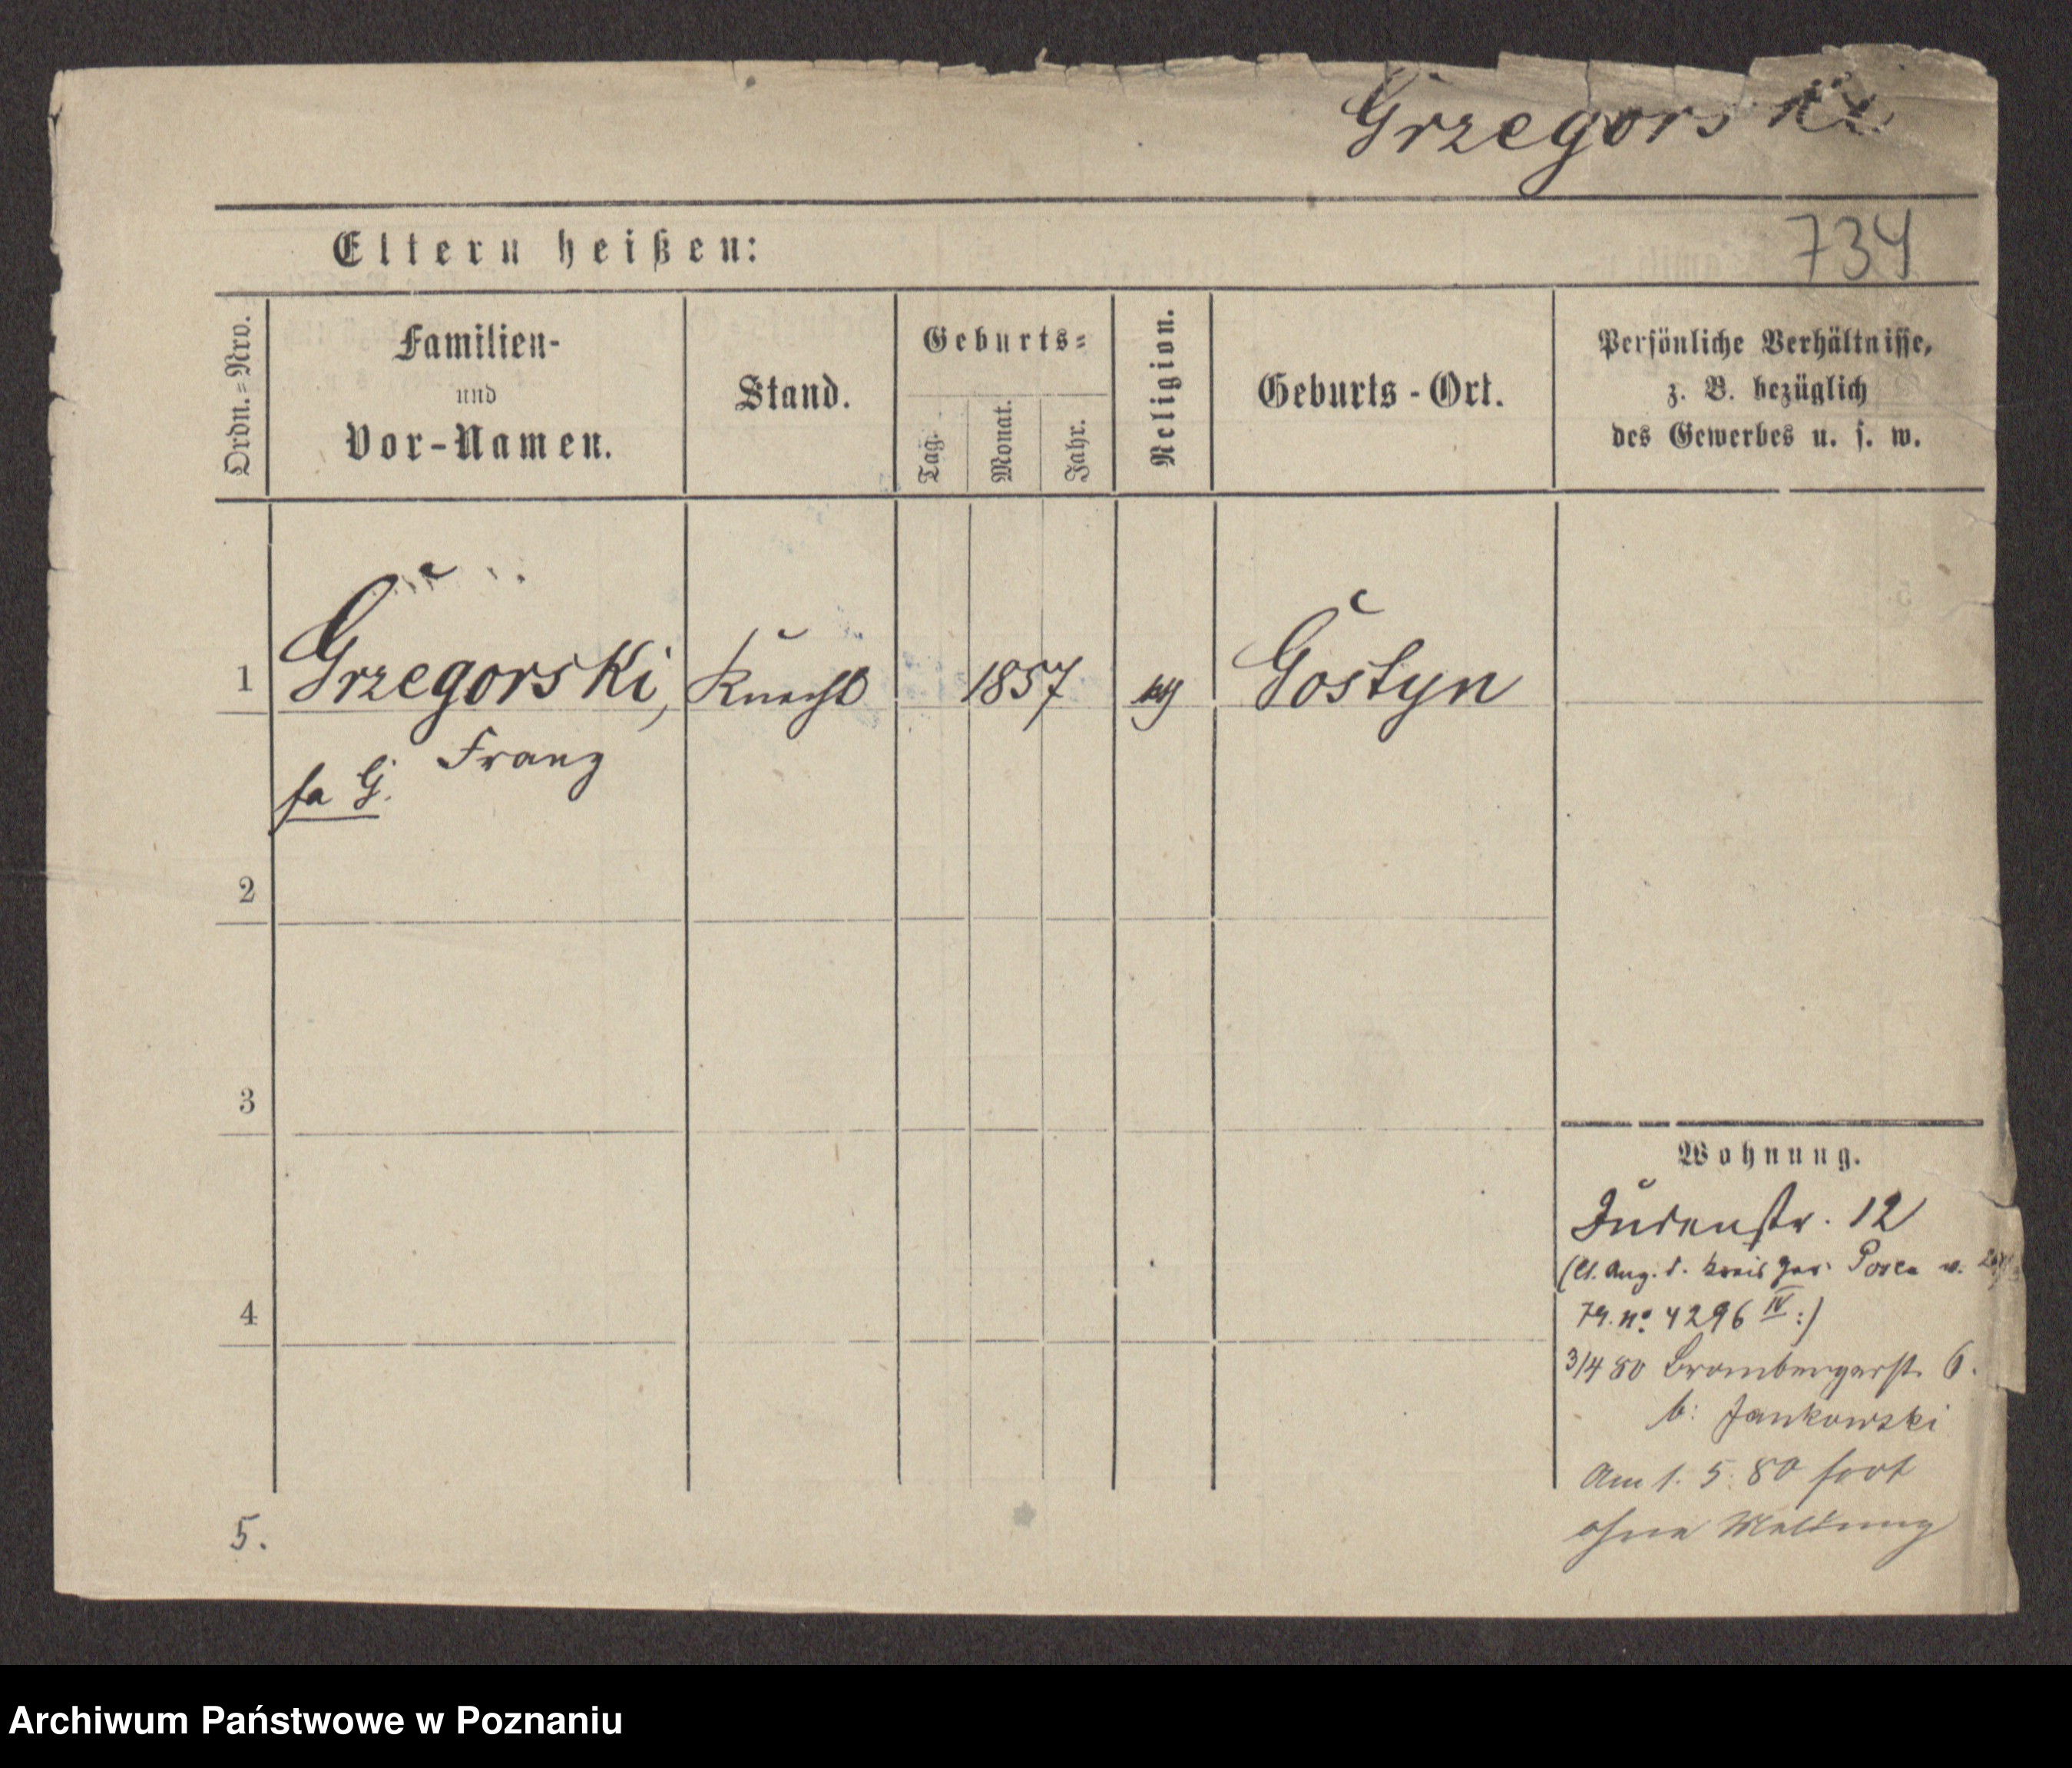 Grzegorski
734
Eltern heißen:
Ordn.=Nro.
Familien-
und
Vor-Namen.
Stand.
Geburts=
Tag.
Monat.
Jahr.
Religion.
Geburts-Ort.
Persönliche Verhältnisse,
z. B. bezüglich
des Gewerbes u. s. w.
1 Grzegorski, Knecht 1857 Gostyn
Franz
fa G.
2
3
4
5.
Wohnung.
Judenstr. 12
(lt. Ang. d. Kreis Ger. Posen v.
79. No 4296 IV :)
3/4 80 Brombergerstr. 6.
b: Jankowski
Am 1. 5. 80 fort
ohne Meldung
Archiwum Państwowe w Poznaniu